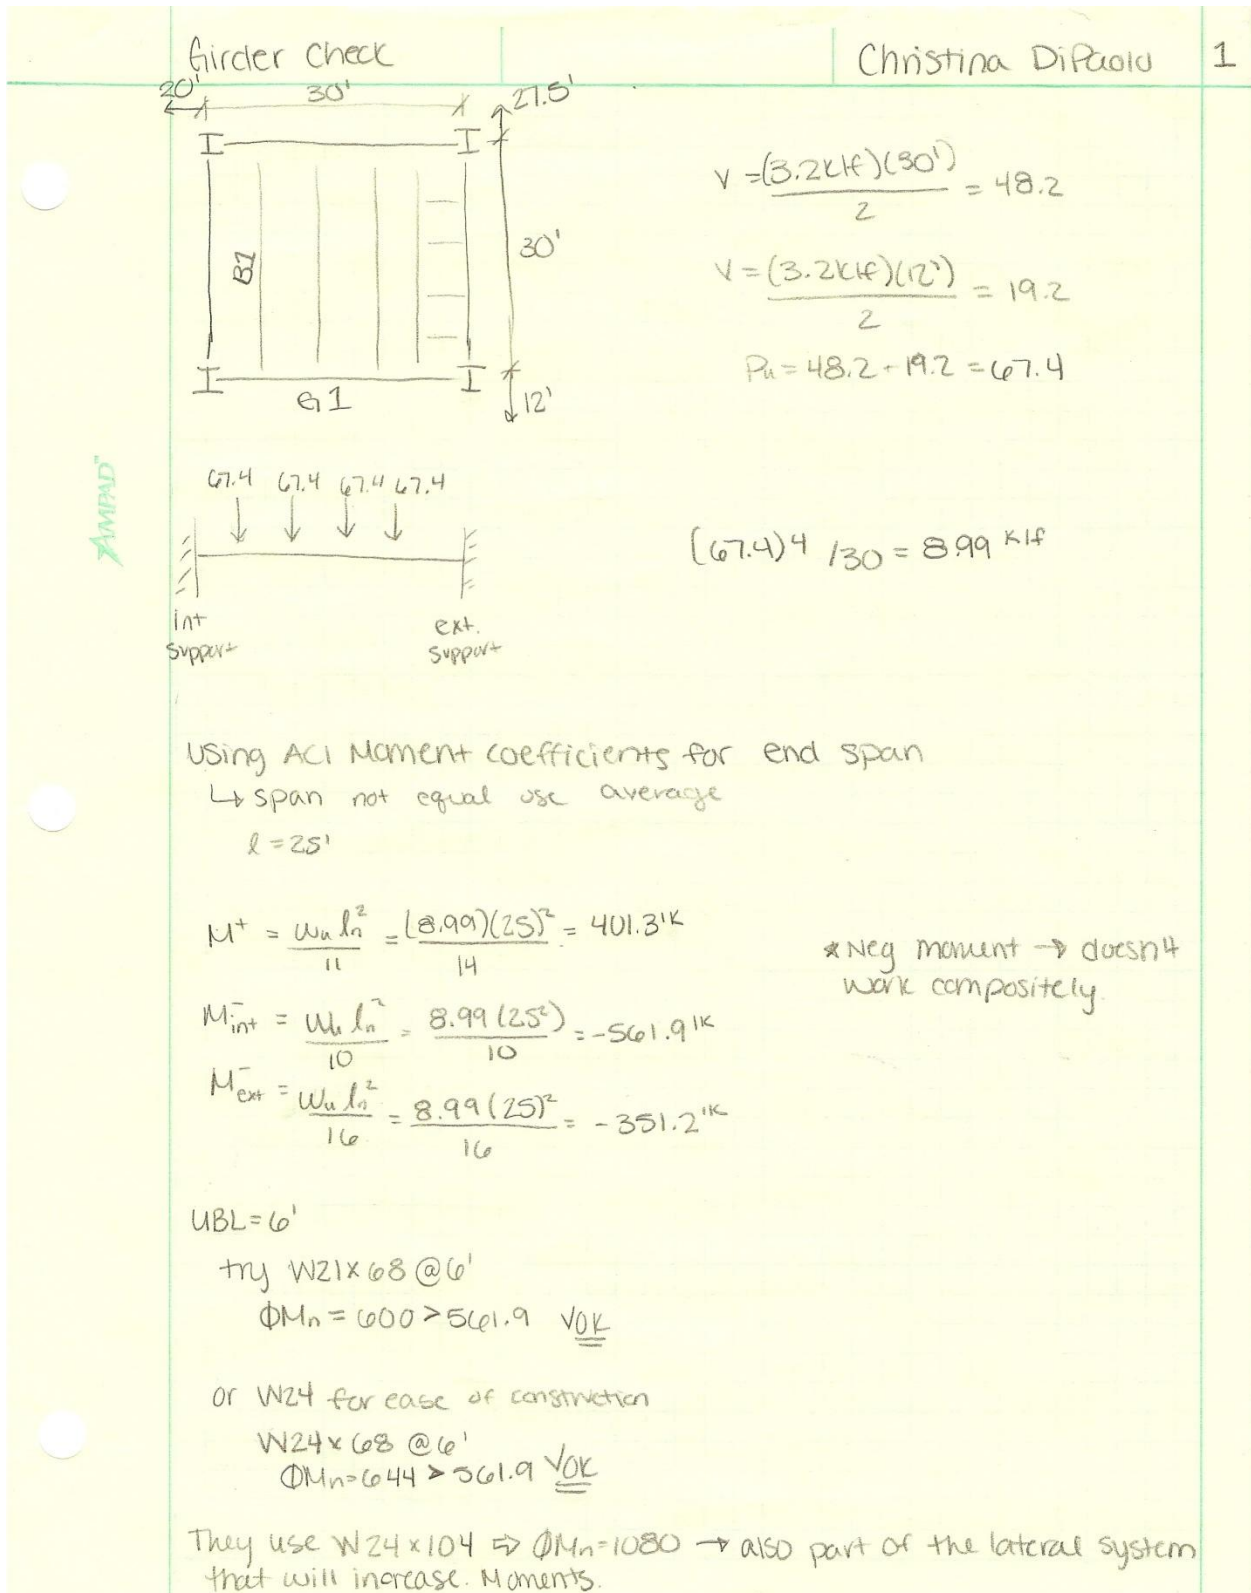 Girder Check
Christina DiPaolo
1
20'
30'
27.5'
B1
30'
G1
12'
V = (3.2klf)(30') / 2 = 48.2
V = (3.2klf)(12') / 2 = 19.2
Pu = 48.2 + 19.2 = 67.4
AMPAD™
67.4 67.4 67.4 67.4
int support
ext. support
(67.4)4 /30 = 8.99 klf
Using ACI Moment coefficients for end span
↳ span not equal use average
l = 25'
M⁺ = wu ln² / 11 = (8.99)(25)² / 14 = 401.3'k
M⁻int = wu ln² / 10 = 8.99(25²) / 10 = -561.9'k
M⁻ext = wu ln² / 16 = 8.99(25)² / 16 = -351.2'k
* Neg moment → doesn't
work compositely.
UBL = 6'
try W21x68 @6'
ΦMn = 600 > 561.9 √OK
or W24 for ease of construction
W24x68 @6'
ΦMn=644 > 561.9 √OK
They use W24x104 ⇒ ΦMn=1080 → also part of the lateral system
that will increase. Moments.